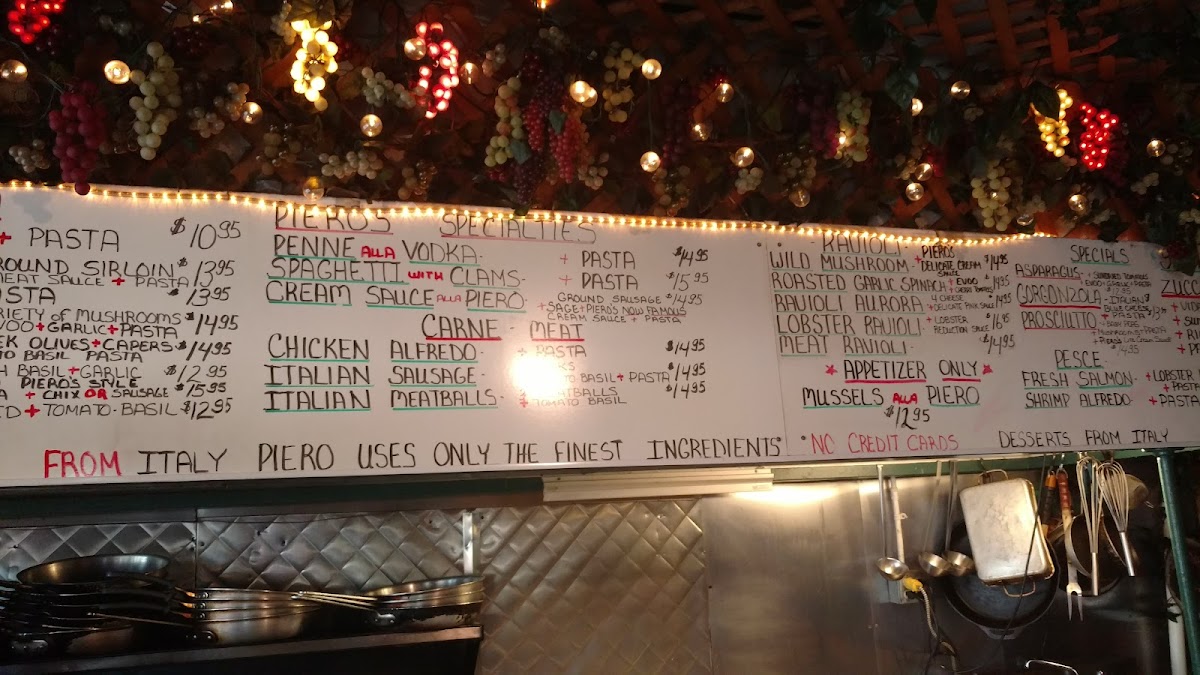 + PASTA $10.95
ROUND SIRLOIN $13.95
MEAT SAUCE + PASTA
$13.95
VARIETY OF MUSHROOMS
EVOO + GARLIC + PASTA $14.95
OLIVES + CAPERS $14.95
BASIL PASTA
BASIL + GARLIC $12.95
PIERO'S STYLE
+ CHIX OR SAUSAGE $15.95
+ TOMATO-BASIL $12.95
PIERO'S SPECIALTIES
PENNE ALLA VODKA + PASTA $14.95
SPAGHETTI WITH CLAMS + PASTA $15.95
CREAM SAUCE ALLA PIERO GROUND SAUSAGE $14.95
+ SAGE + PIEROS NOW FAMOUS
CREAM SAUCE + PASTA
CARNE MEAT
CHICKEN ALFREDO + PASTA $14.95
ITALIAN SAUSAGE BASIL + PASTA $14.95
ITALIAN MEATBALLS MEATBALLS $14.95
+ TOMATO BASIL
RAVIOLI
WILD MUSHROOM + PIEROS DELICATE CREAM SAUCE $14.95
ROASTED GARLIC SPINACH + EVOO 14.95
RAVIOLI AURORA 4 CHEESE + DELICATE PINK SAUCE $14.95
LOBSTER RAVIOLI + LOBSTER REDUCTION SAUCE $16.95
MEAT RAVIOLI $14.95
APPETIZER ONLY
MUSSELS ALLA PIERO
$12.95
SPECIALS
ASPARAGUS
+ EVOO + GARLIC + PASTA
GORGONZOLA ITALIAN
BLUE CHEESE
+ PASTA
PROSCIUTTO
PESCE
FRESH SALMON + LOBSTER
+ PASTA
SHRIMP ALFREDO + PASTA
FROM ITALY PIERO USES ONLY THE FINEST INGREDIENTS
*NO CREDIT CARDS
DESSERTS FROM ITALY